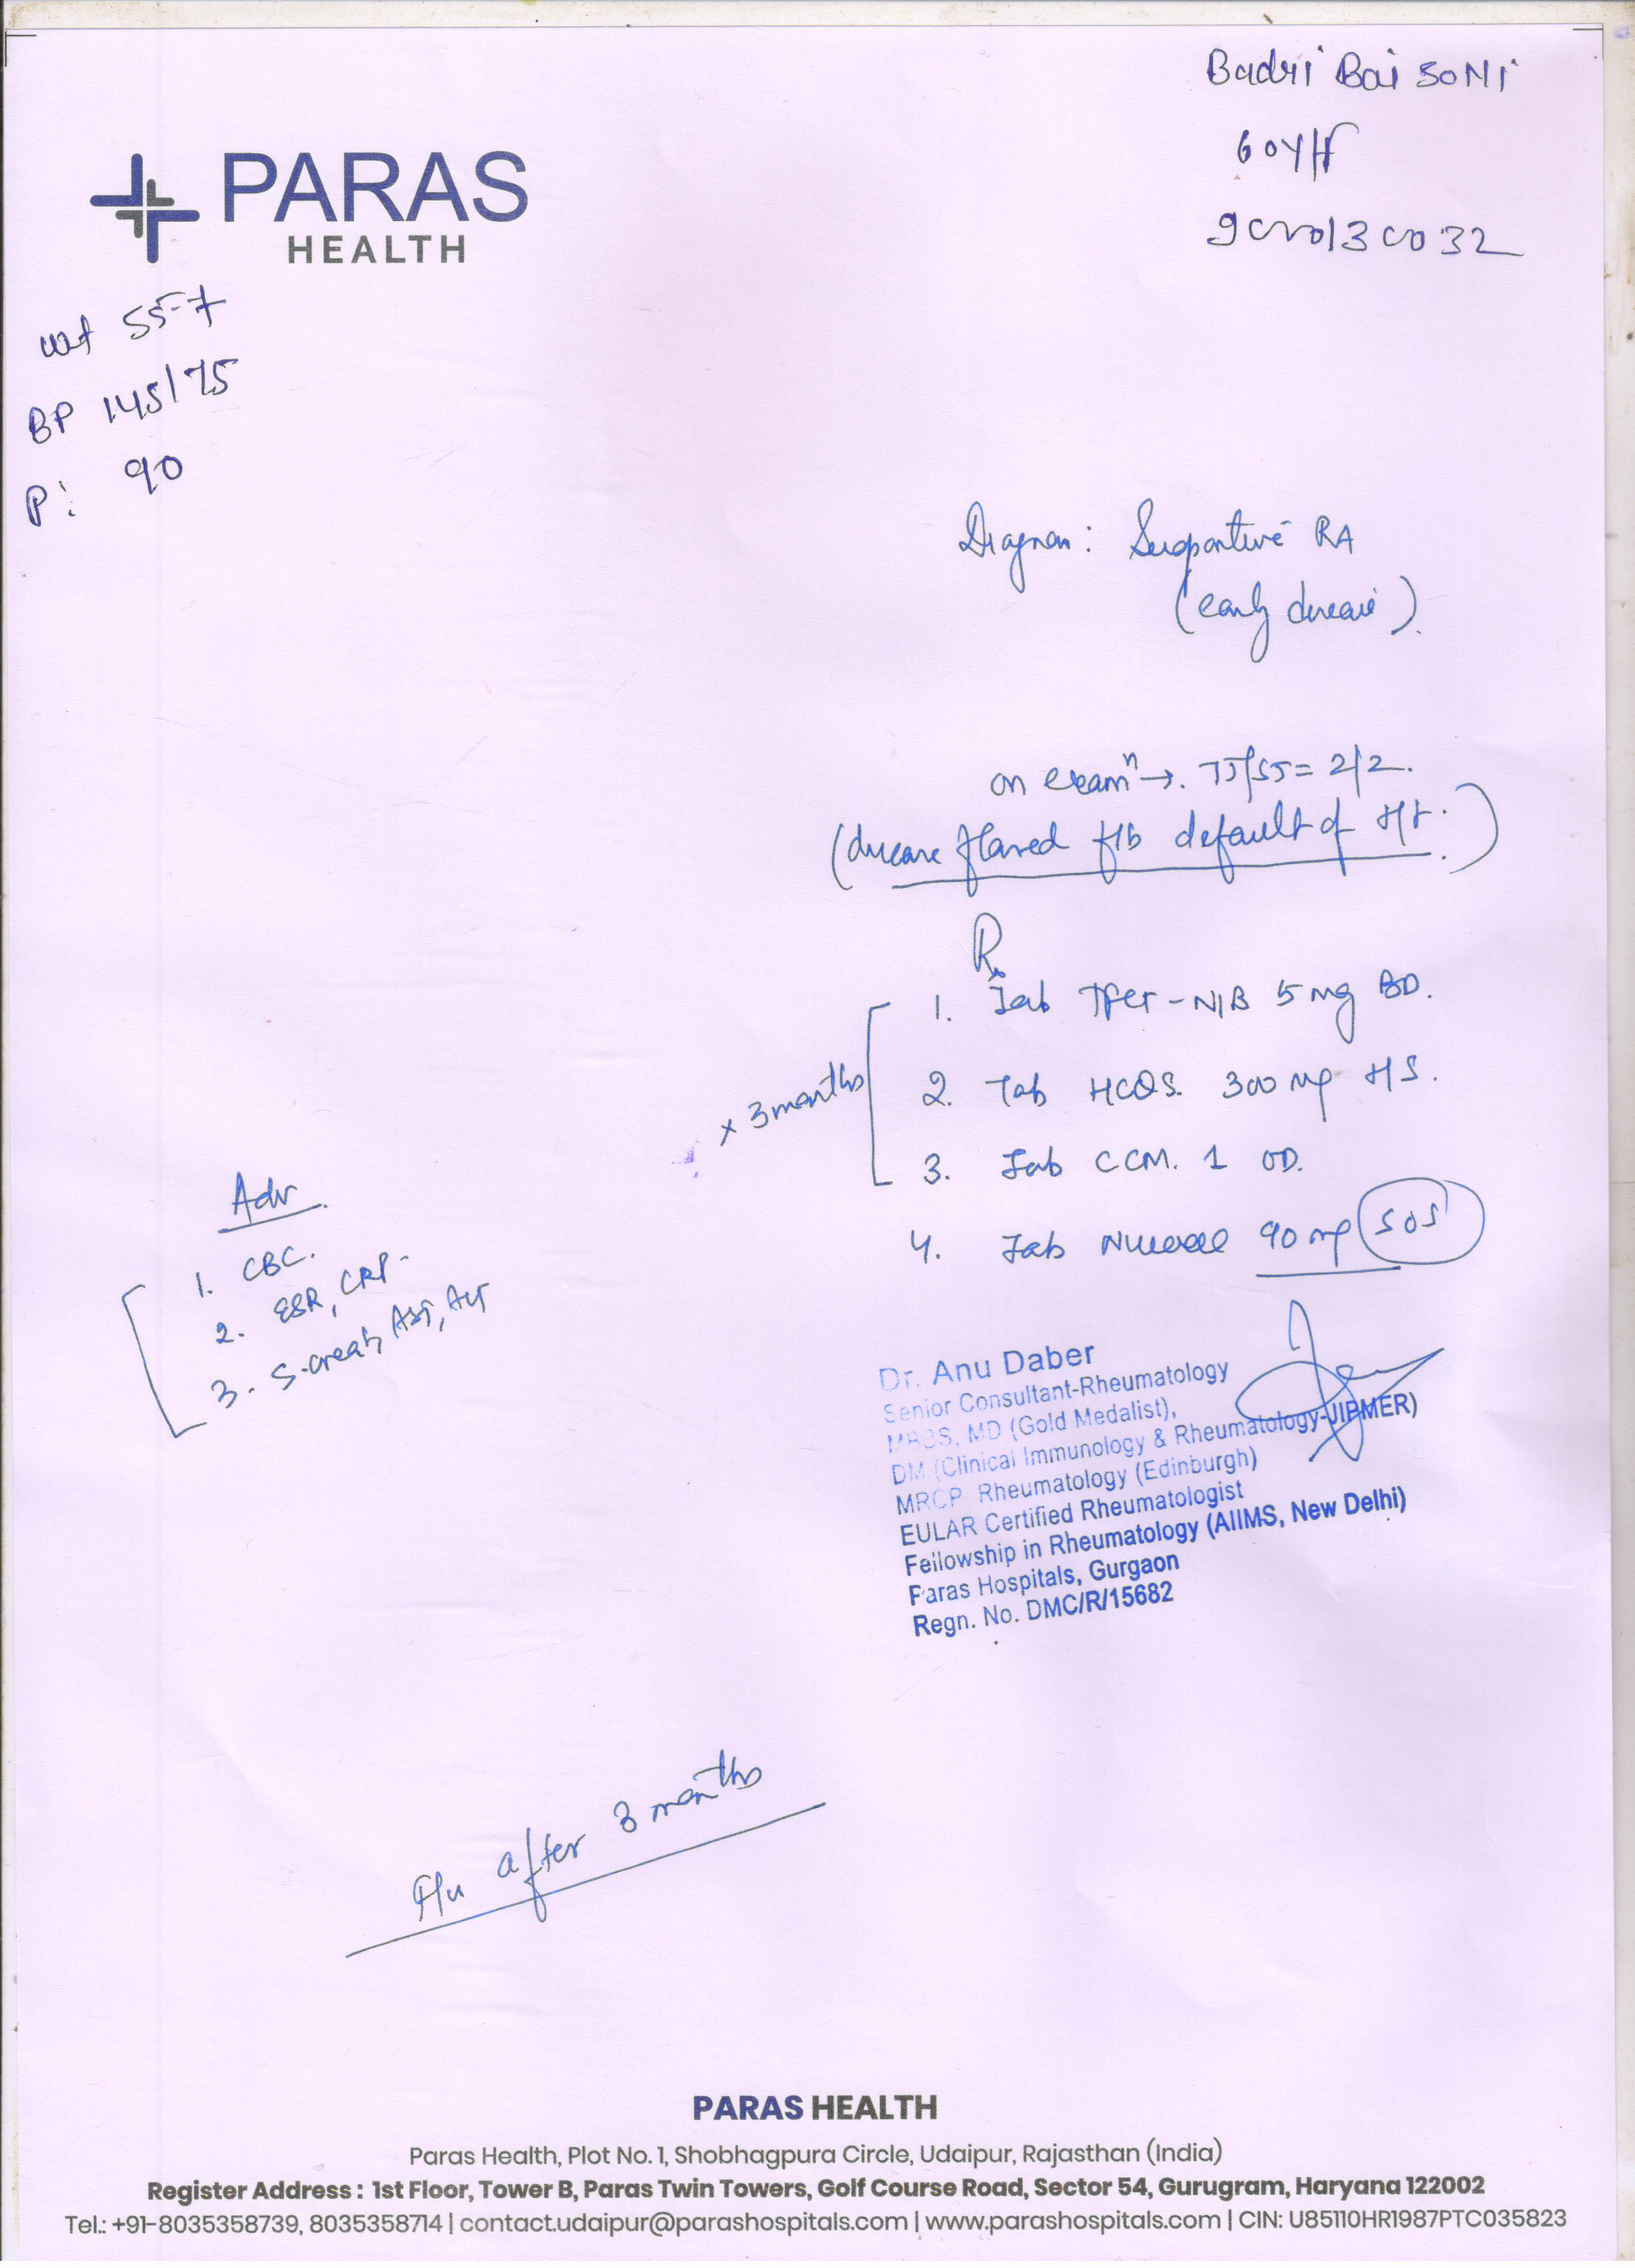 Badri Bai SONI
60Y/F
PARAS
HEALTH
wt 55.7
BP 145/75
P: 90
Diagnosis: Seropositive RA
(early disease)
on examⁿ →. TJ/SJ = 2/2.
(disease flared f/b default of t/t.)
Rx
1. Tab Tfct-NIB 5 mg BD.
2. Tab HCQS. 300 mg HS.
x 3 months
3. Tab CCM. 1 OD.
4. Tab 90 mg SOS
Adv
1. CBC.
2. ESR, CRP
3. S-creat, AST, ALT
Dr. Anu Daber
Senior Consultant-Rheumatology
MBBS, MD (Gold Medalist),
DM (Clinical Immunology & Rheumatology-JIPMER)
MRCP Rheumatology (Edinburgh)
EULAR Certified Rheumatologist
Fellowship in Rheumatology (AIIMS, New Delhi)
Paras Hospitals, Gurgaon
Regn. No. DMC/R/15682
F/u after 3 months
PARAS HEALTH
Paras Health, Plot No. 1, Shobhagpura Circle, Udaipur, Rajasthan (India)
Register Address : 1st Floor, Tower B, Paras Twin Towers, Golf Course Road, Sector 54, Gurugram, Haryana 122002
Tel.: +91-8035358739, 8035358714 | contact.udaipur@parashospitals.com | www.parashospitals.com | CIN: U85110HR1987PTC035823